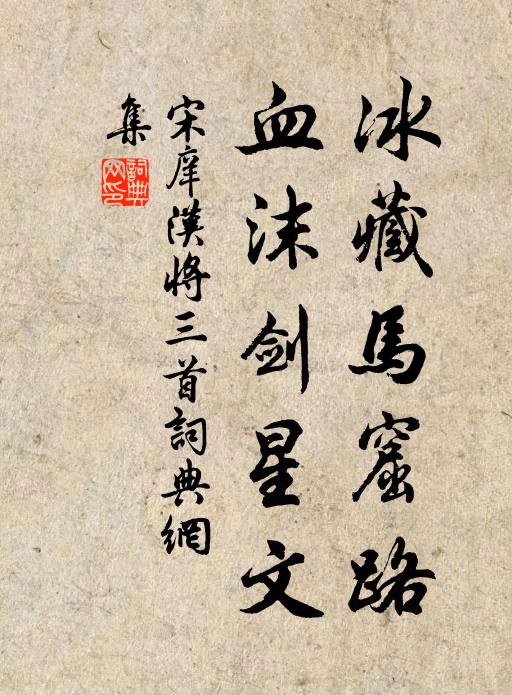 冰藏馬窟路
血沫劍星文
宋庠漢將三首詞典網
集
詞典網印